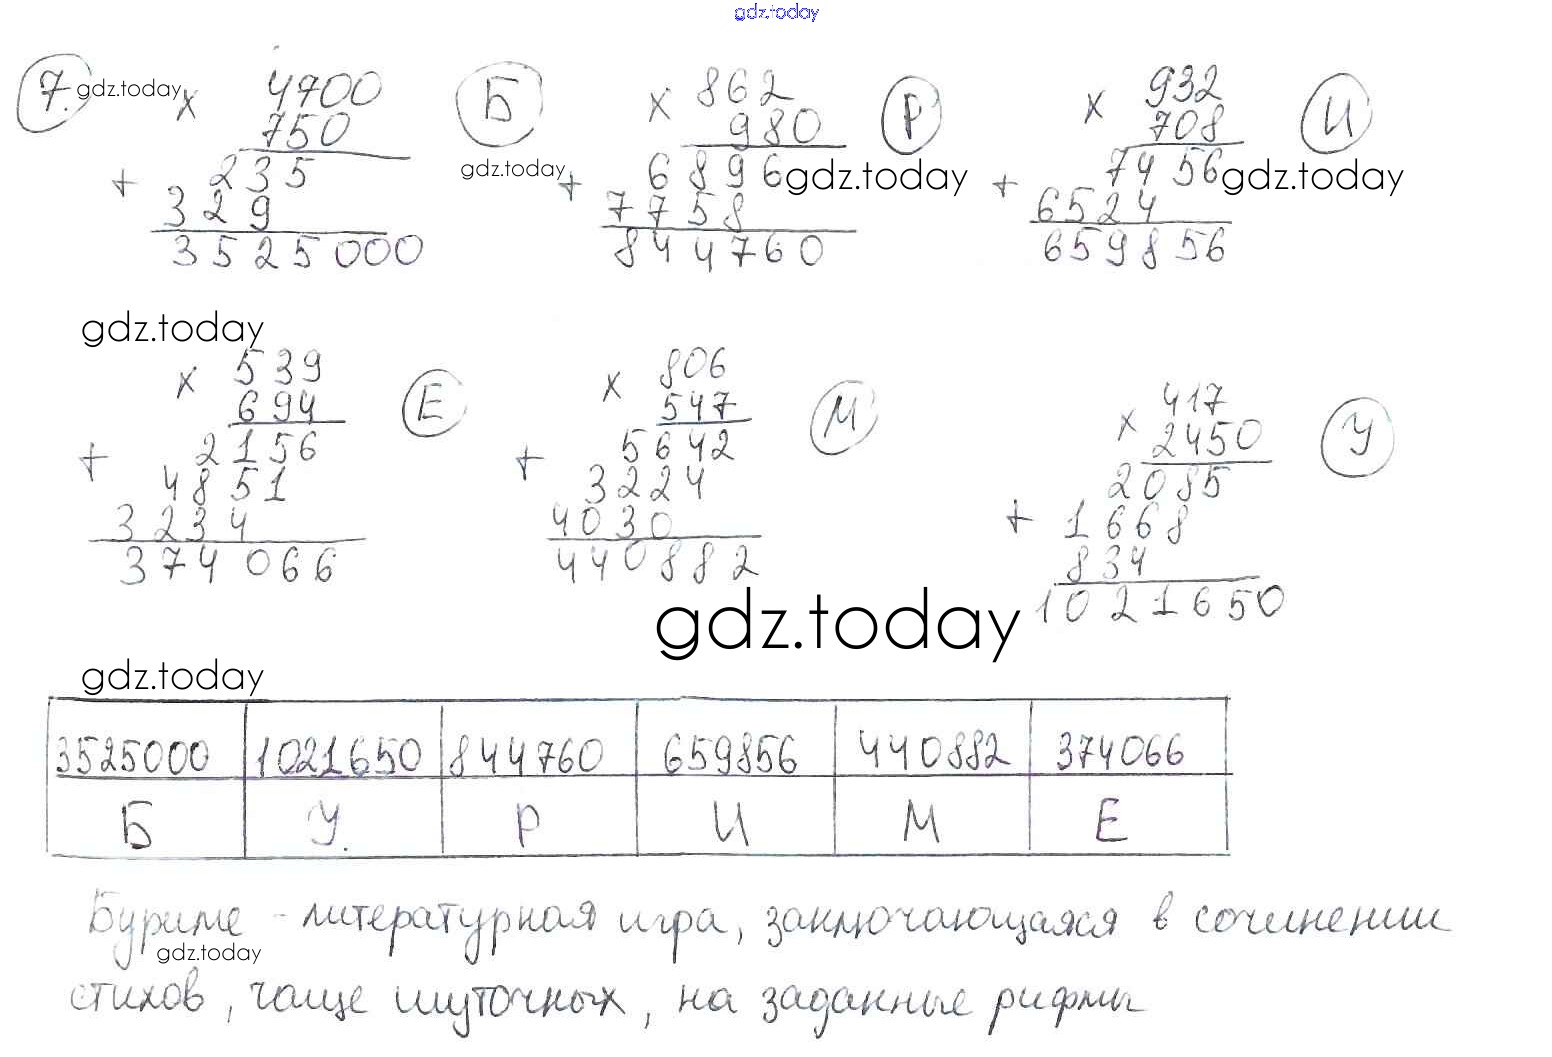 gdz.today
7. gdz.today × 4700 Б × 862 Р × 932 И
750 980 708
+ 235 gdz.today + 6896 gdz.today + 7456 gdz.today
329 7758 6524
3525000 844760 659856
gdz.today
× 539 Е × 806 М × 417 У
694 547 2450
+ 2156 + 5642 2085
4851 3224 + 1668
3234 4030 834
374066 440882 1021650
gdz.today
gdz.today
3525000 1021650 844760 659856 440882 374066
Б У. Р И М Е
Буриме - литературная игра, заключающаяся в сочинении
gdz.today
стихов, чаще шуточных, на заданные рифмы